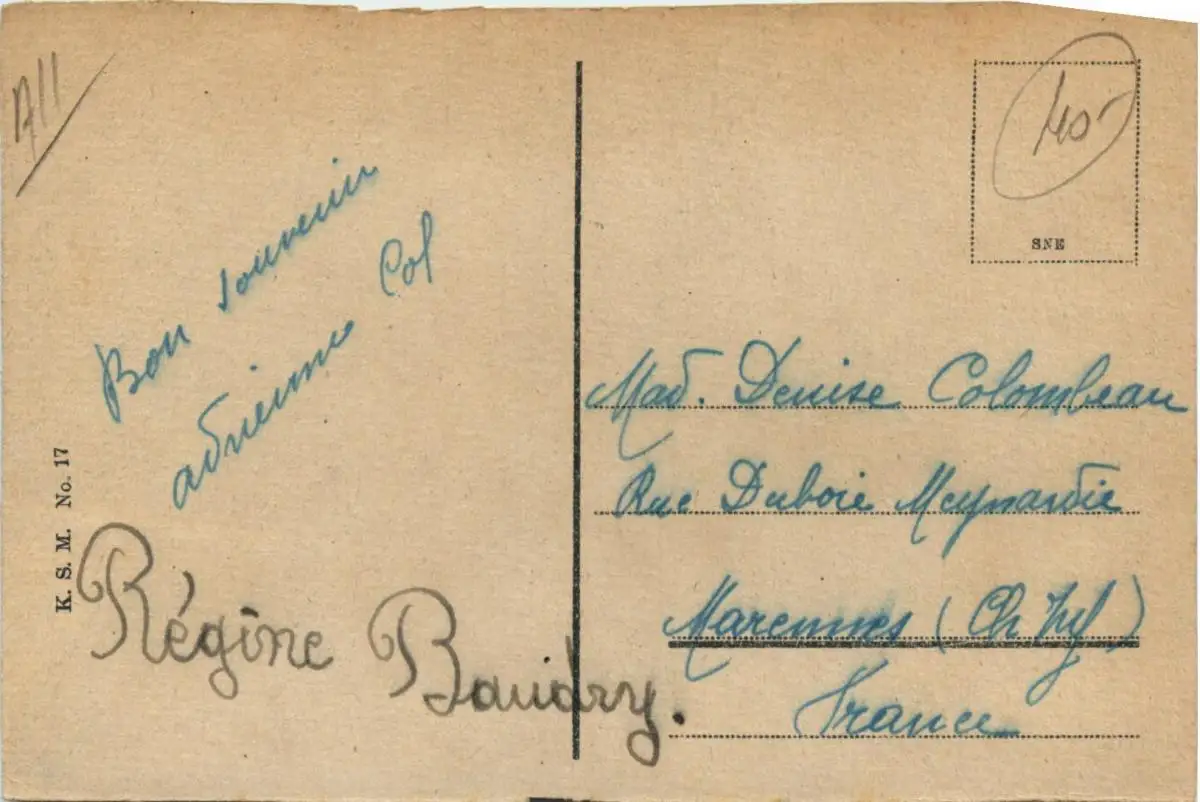 A11
Bon souvenir
adrienne Col
K. S. M. No. 17
Régine Baudry.
40-
SNE
Mad. Denise Colombeau
Rue Dubois Meynardie
Marennes (Ch Inf)
France